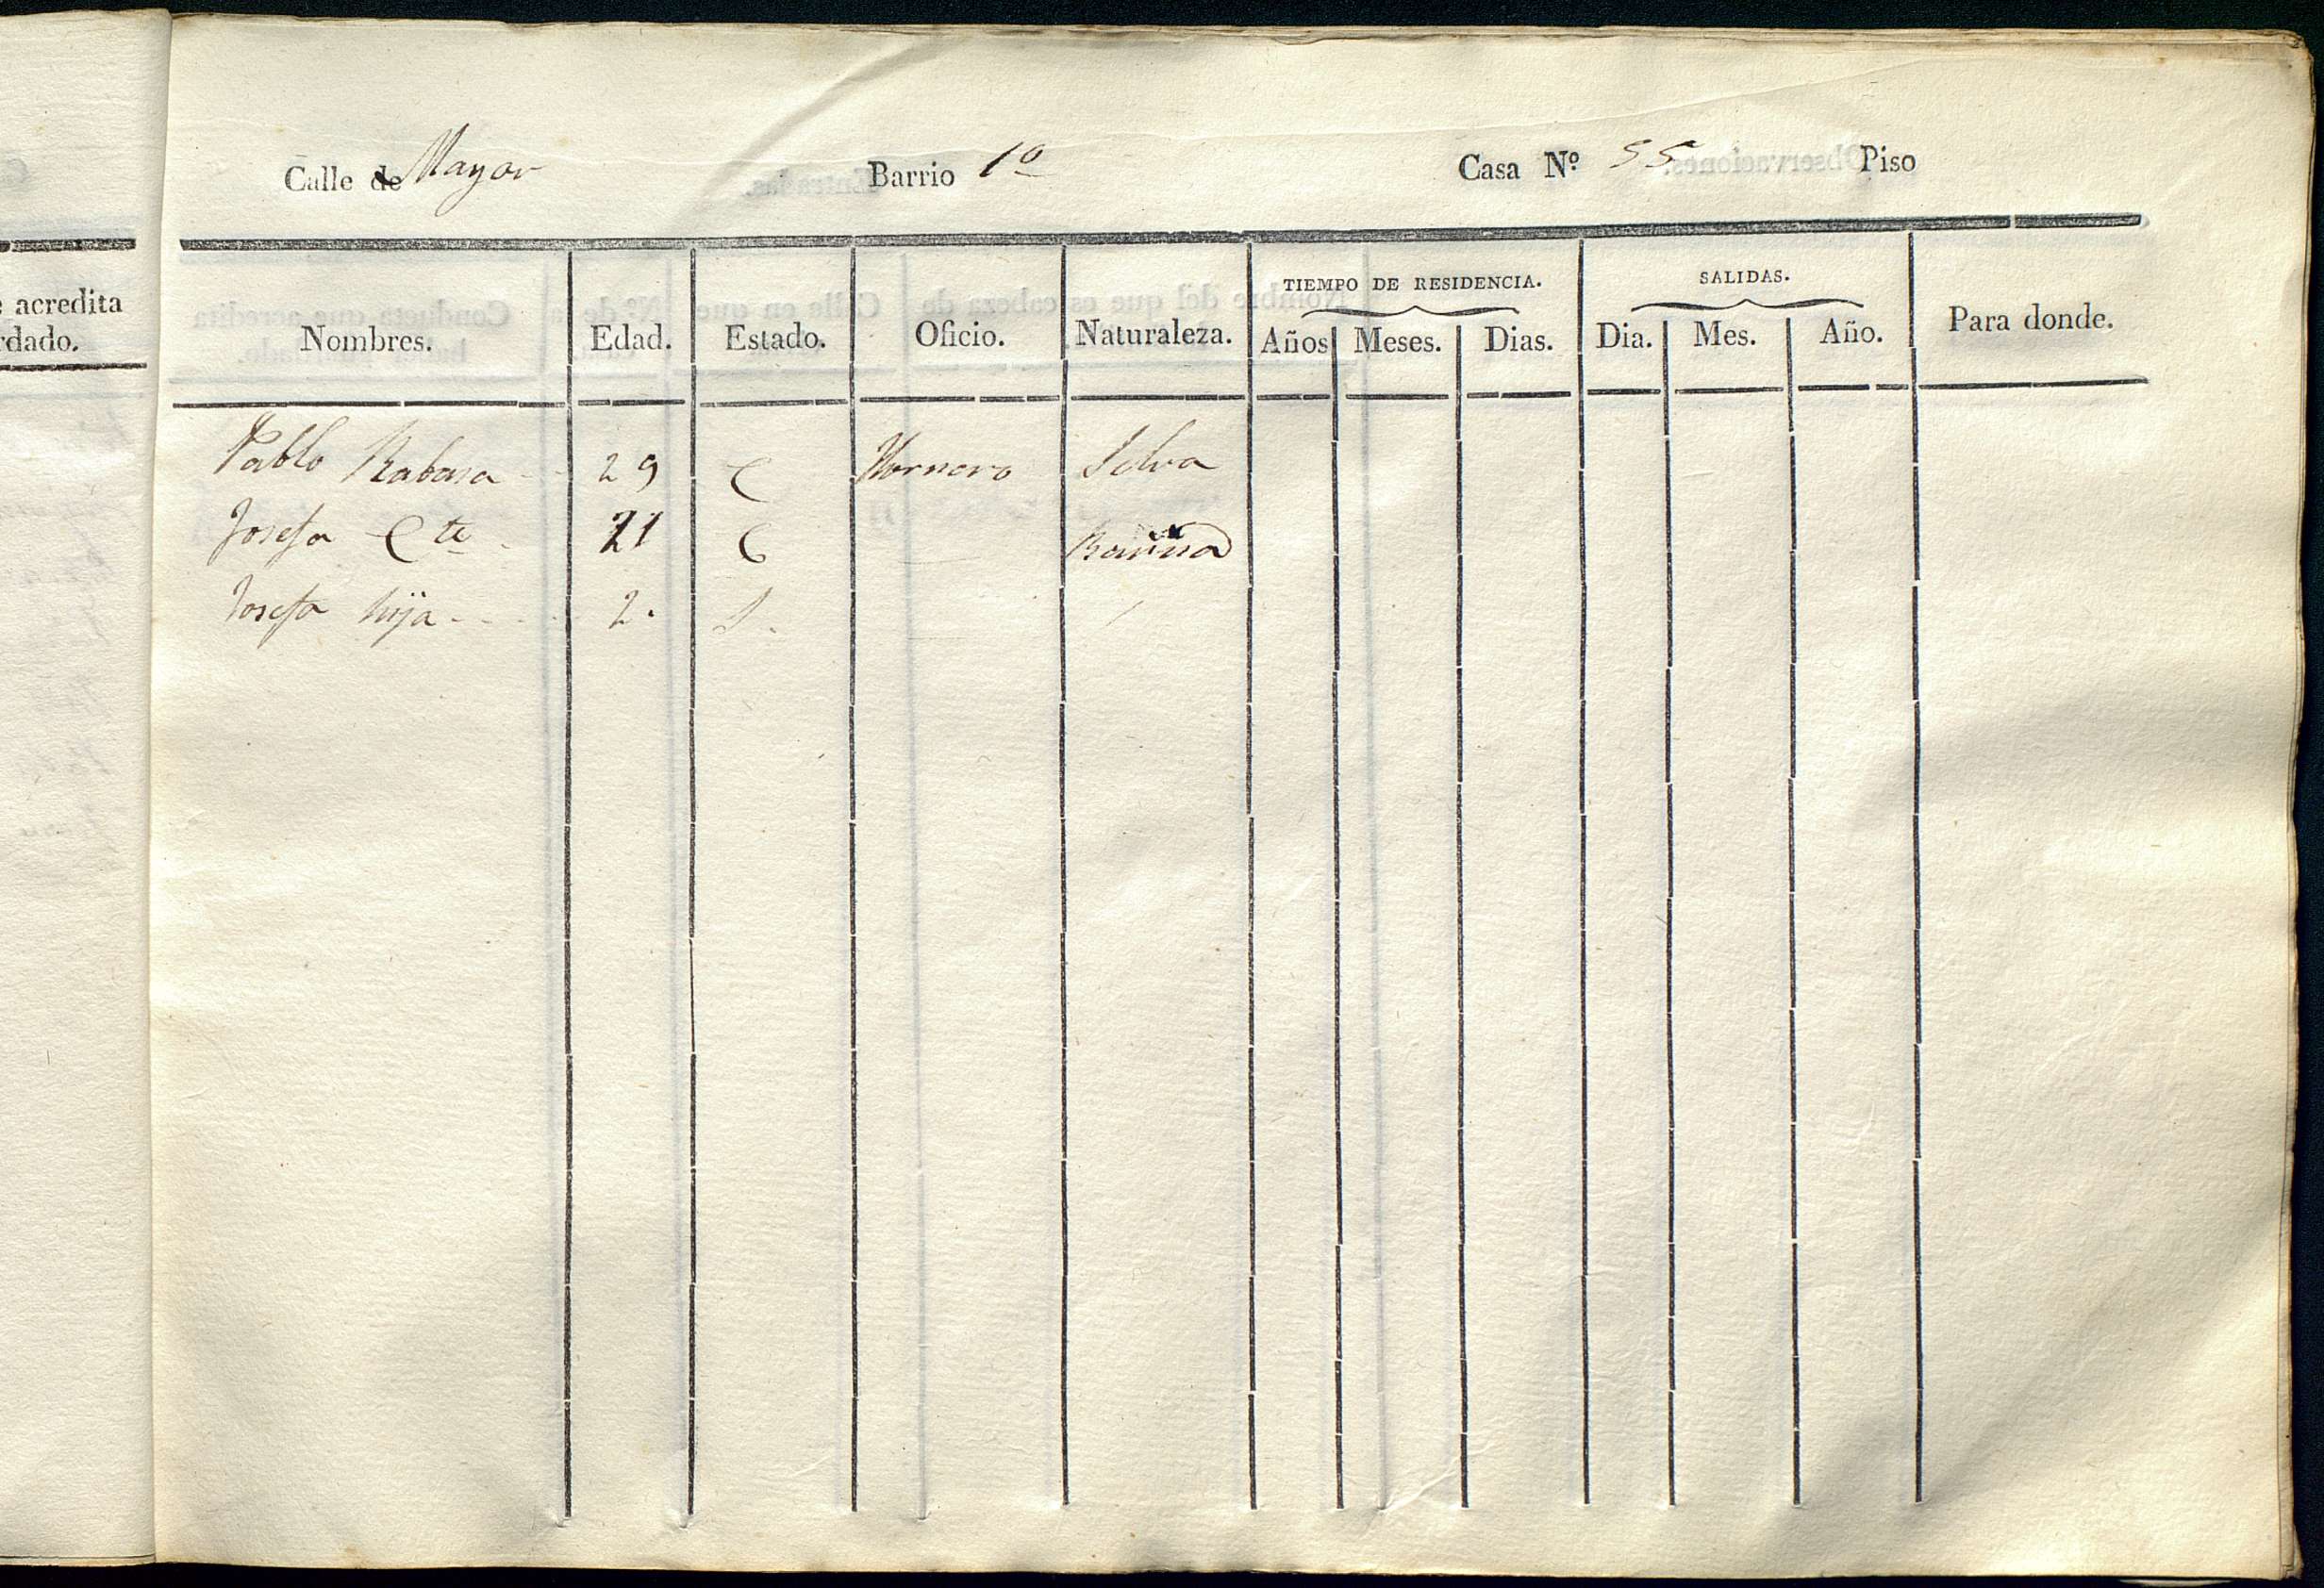 acredita
dado.
Calle de Mayor Barrio 1º Casa Nº 55 Piso
TIEMPO DE RESIDENCIA. SALIDAS.
Nombres. Edad. Estado. Oficio. Naturaleza. Años Meses. Dias. Dia. Mes. Año. Para donde.
Pablo Rabasa 29 C Hornero Selva
Josefa Cte 21 C
Josefa hija 2. S.